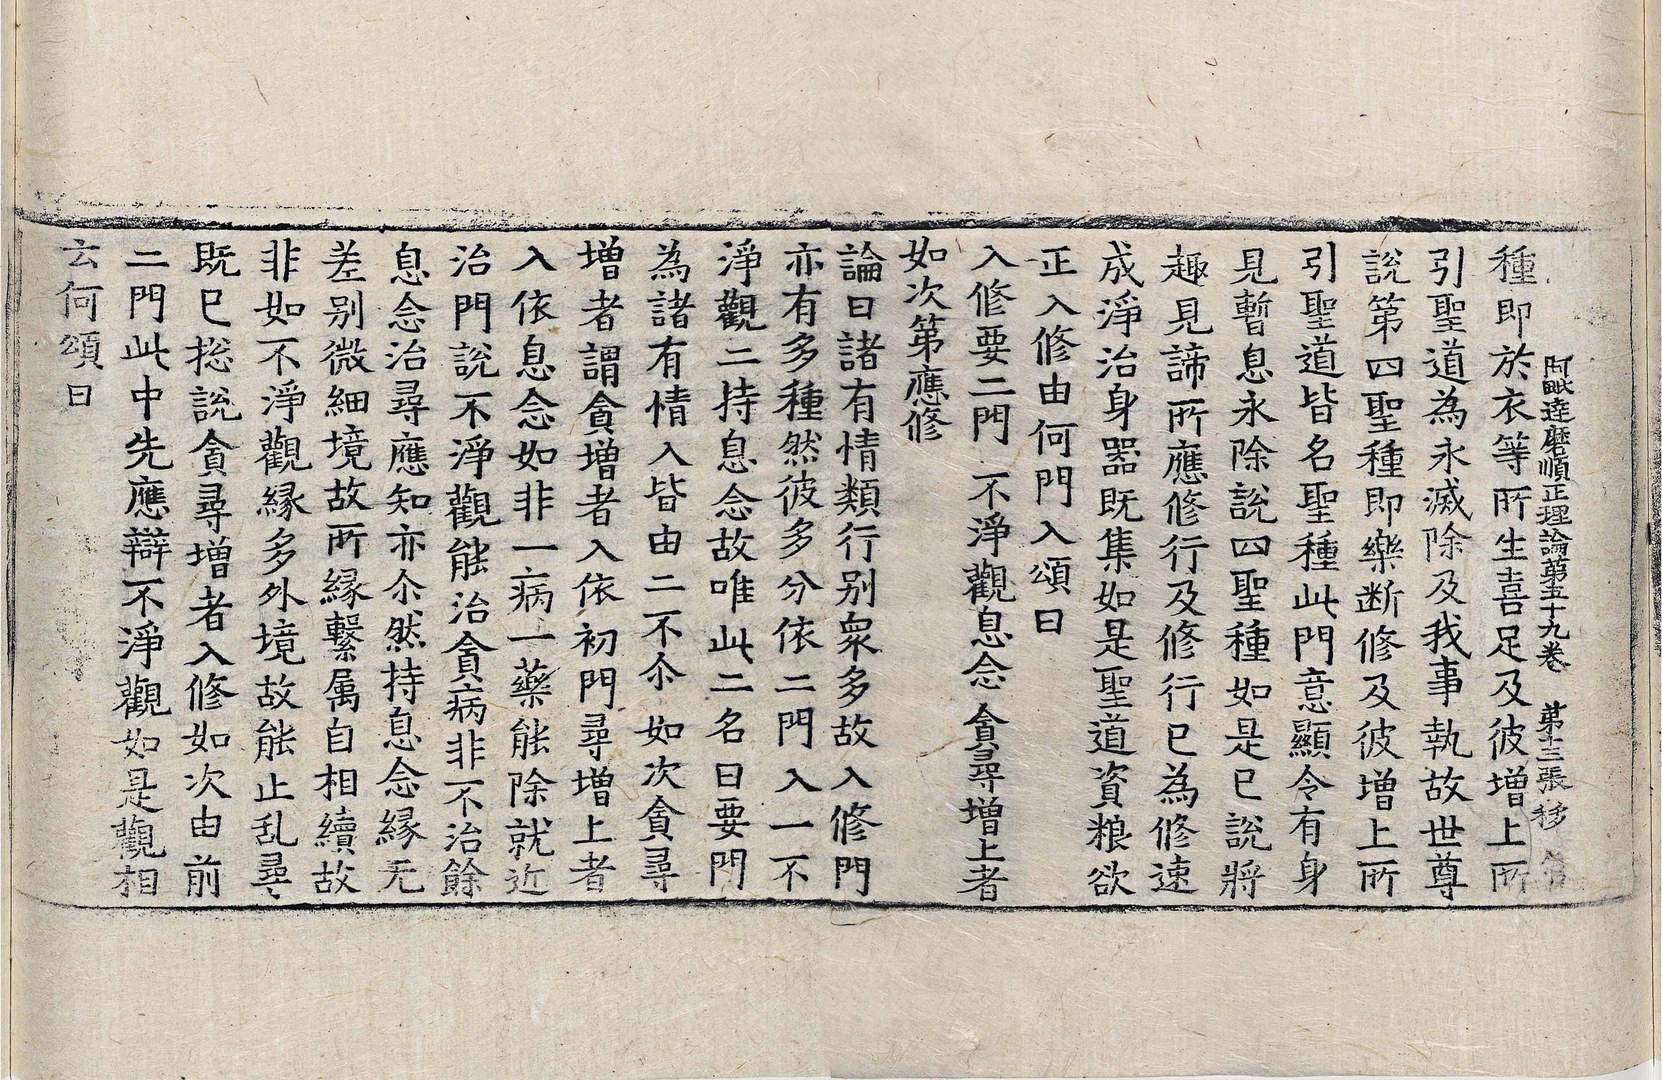 阿毗達磨順正理論第五十九卷 第十三張 移
種即於衣等所生喜足及彼增上所
引聖道為永滅除及我事執故世尊
說第四聖種即樂斷修及彼增上所
引聖道皆名聖種此門意顯令有身
見暫息永除說四聖種如是已說將
趣見諦所應修行及修行已為修速
成淨治身器既集如是聖道資粮欲
正入修由何門入頌曰
入修要二門 不淨觀息念 貪尋增上者
如次第應修
論曰諸有情類行別衆多故入修門
亦有多種然彼多分依二門入一不
淨觀二持息念故唯此二名曰要門
為諸有情入皆由二不尒如次貪尋
增者謂貪增者入依初門尋增上者
入依息念如非一病一藥能除就近
治門說不淨觀能治貪病非不治餘
息念治尋應知亦尒然持息念緣无
差別微細境故所緣繫属自相續故
非如不淨觀緣多外境故能止乱尋
既已捴說貪尋增者入修如次由前
二門此中先應辯不淨觀如是觀相
云何頌曰